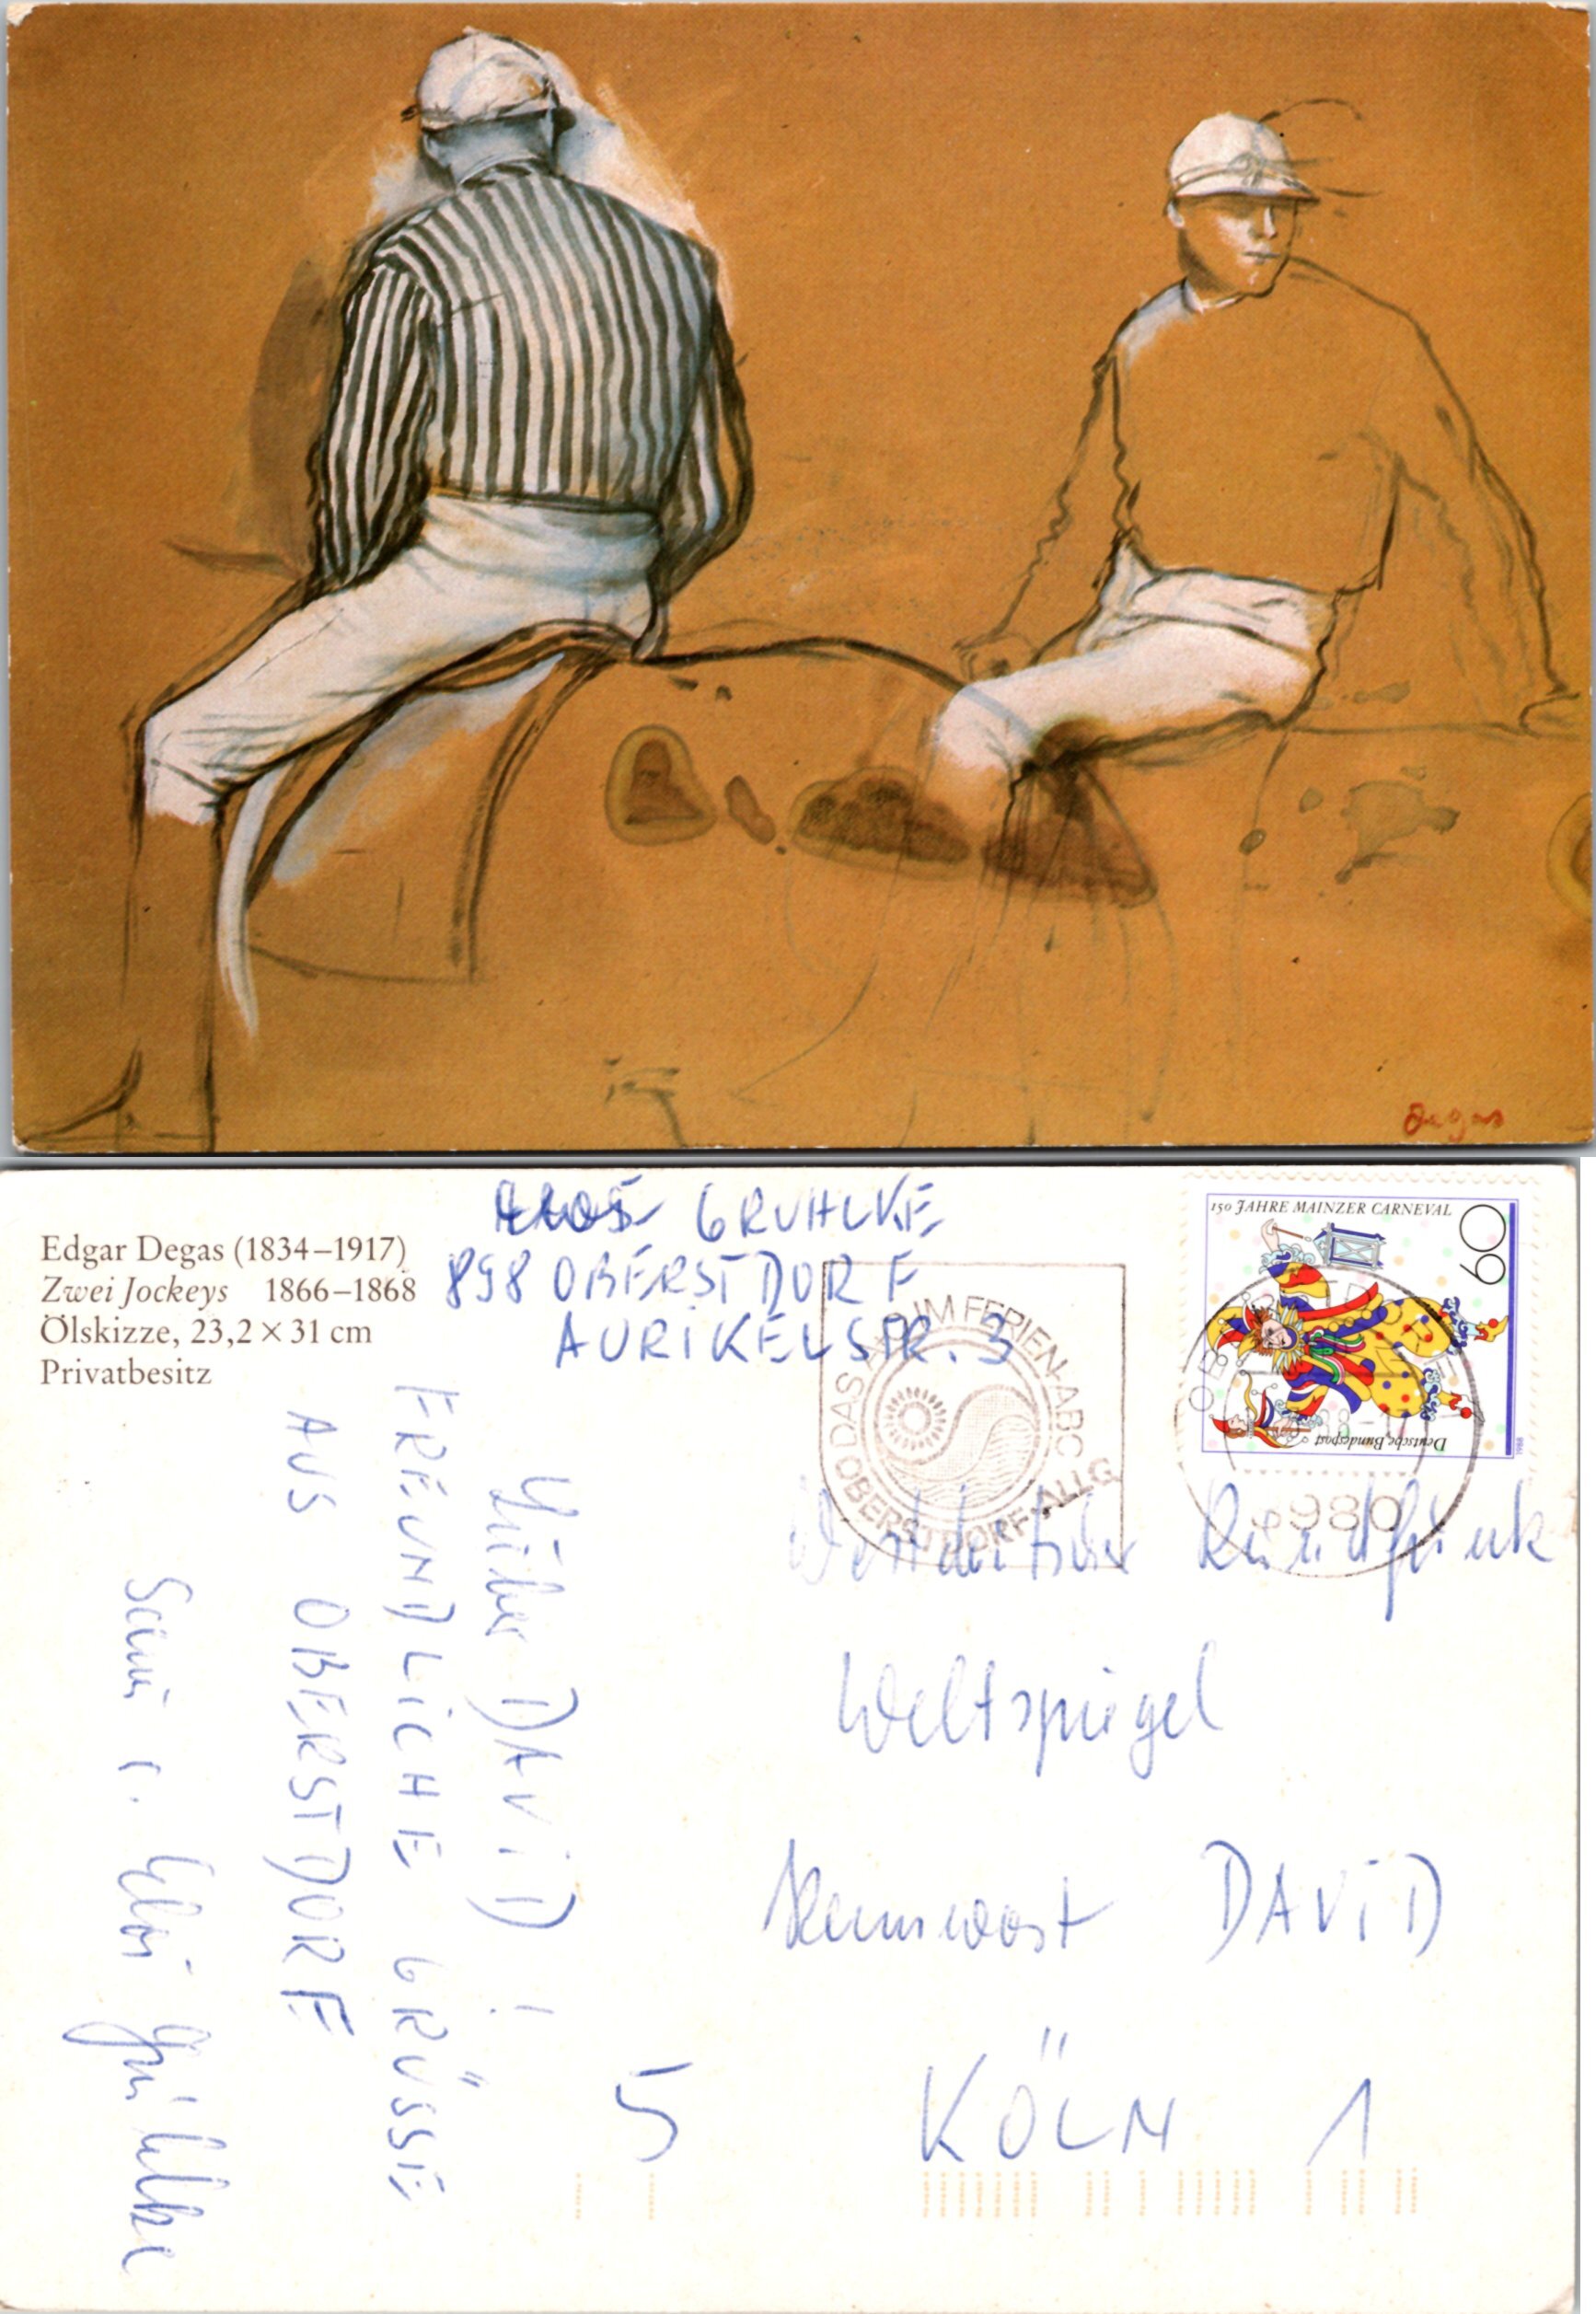 Degas
Edgar Degas (1834–1917)
Zwei Jockeys 1866–1868
Ölskizze, 23,2 × 31 cm
Privatbesitz
GRUHLKE
898 OBERSTDORF
AURIKELSTR. 3
DAS A+O IM FERIEN-ABC
OBERSTDORF-ALLG
150 JAHRE MAINZER CARNEVAL
60
Deutsche Bundespost
1988
8980
Westdeutscher Rundfunk
Weltspiegel
Kennwort DAViD
KÖLN 1
5
Lieber DAViD!
FREUNDLiCHE GRÜSSE
AUS OBERSTDORF
Gruhlke